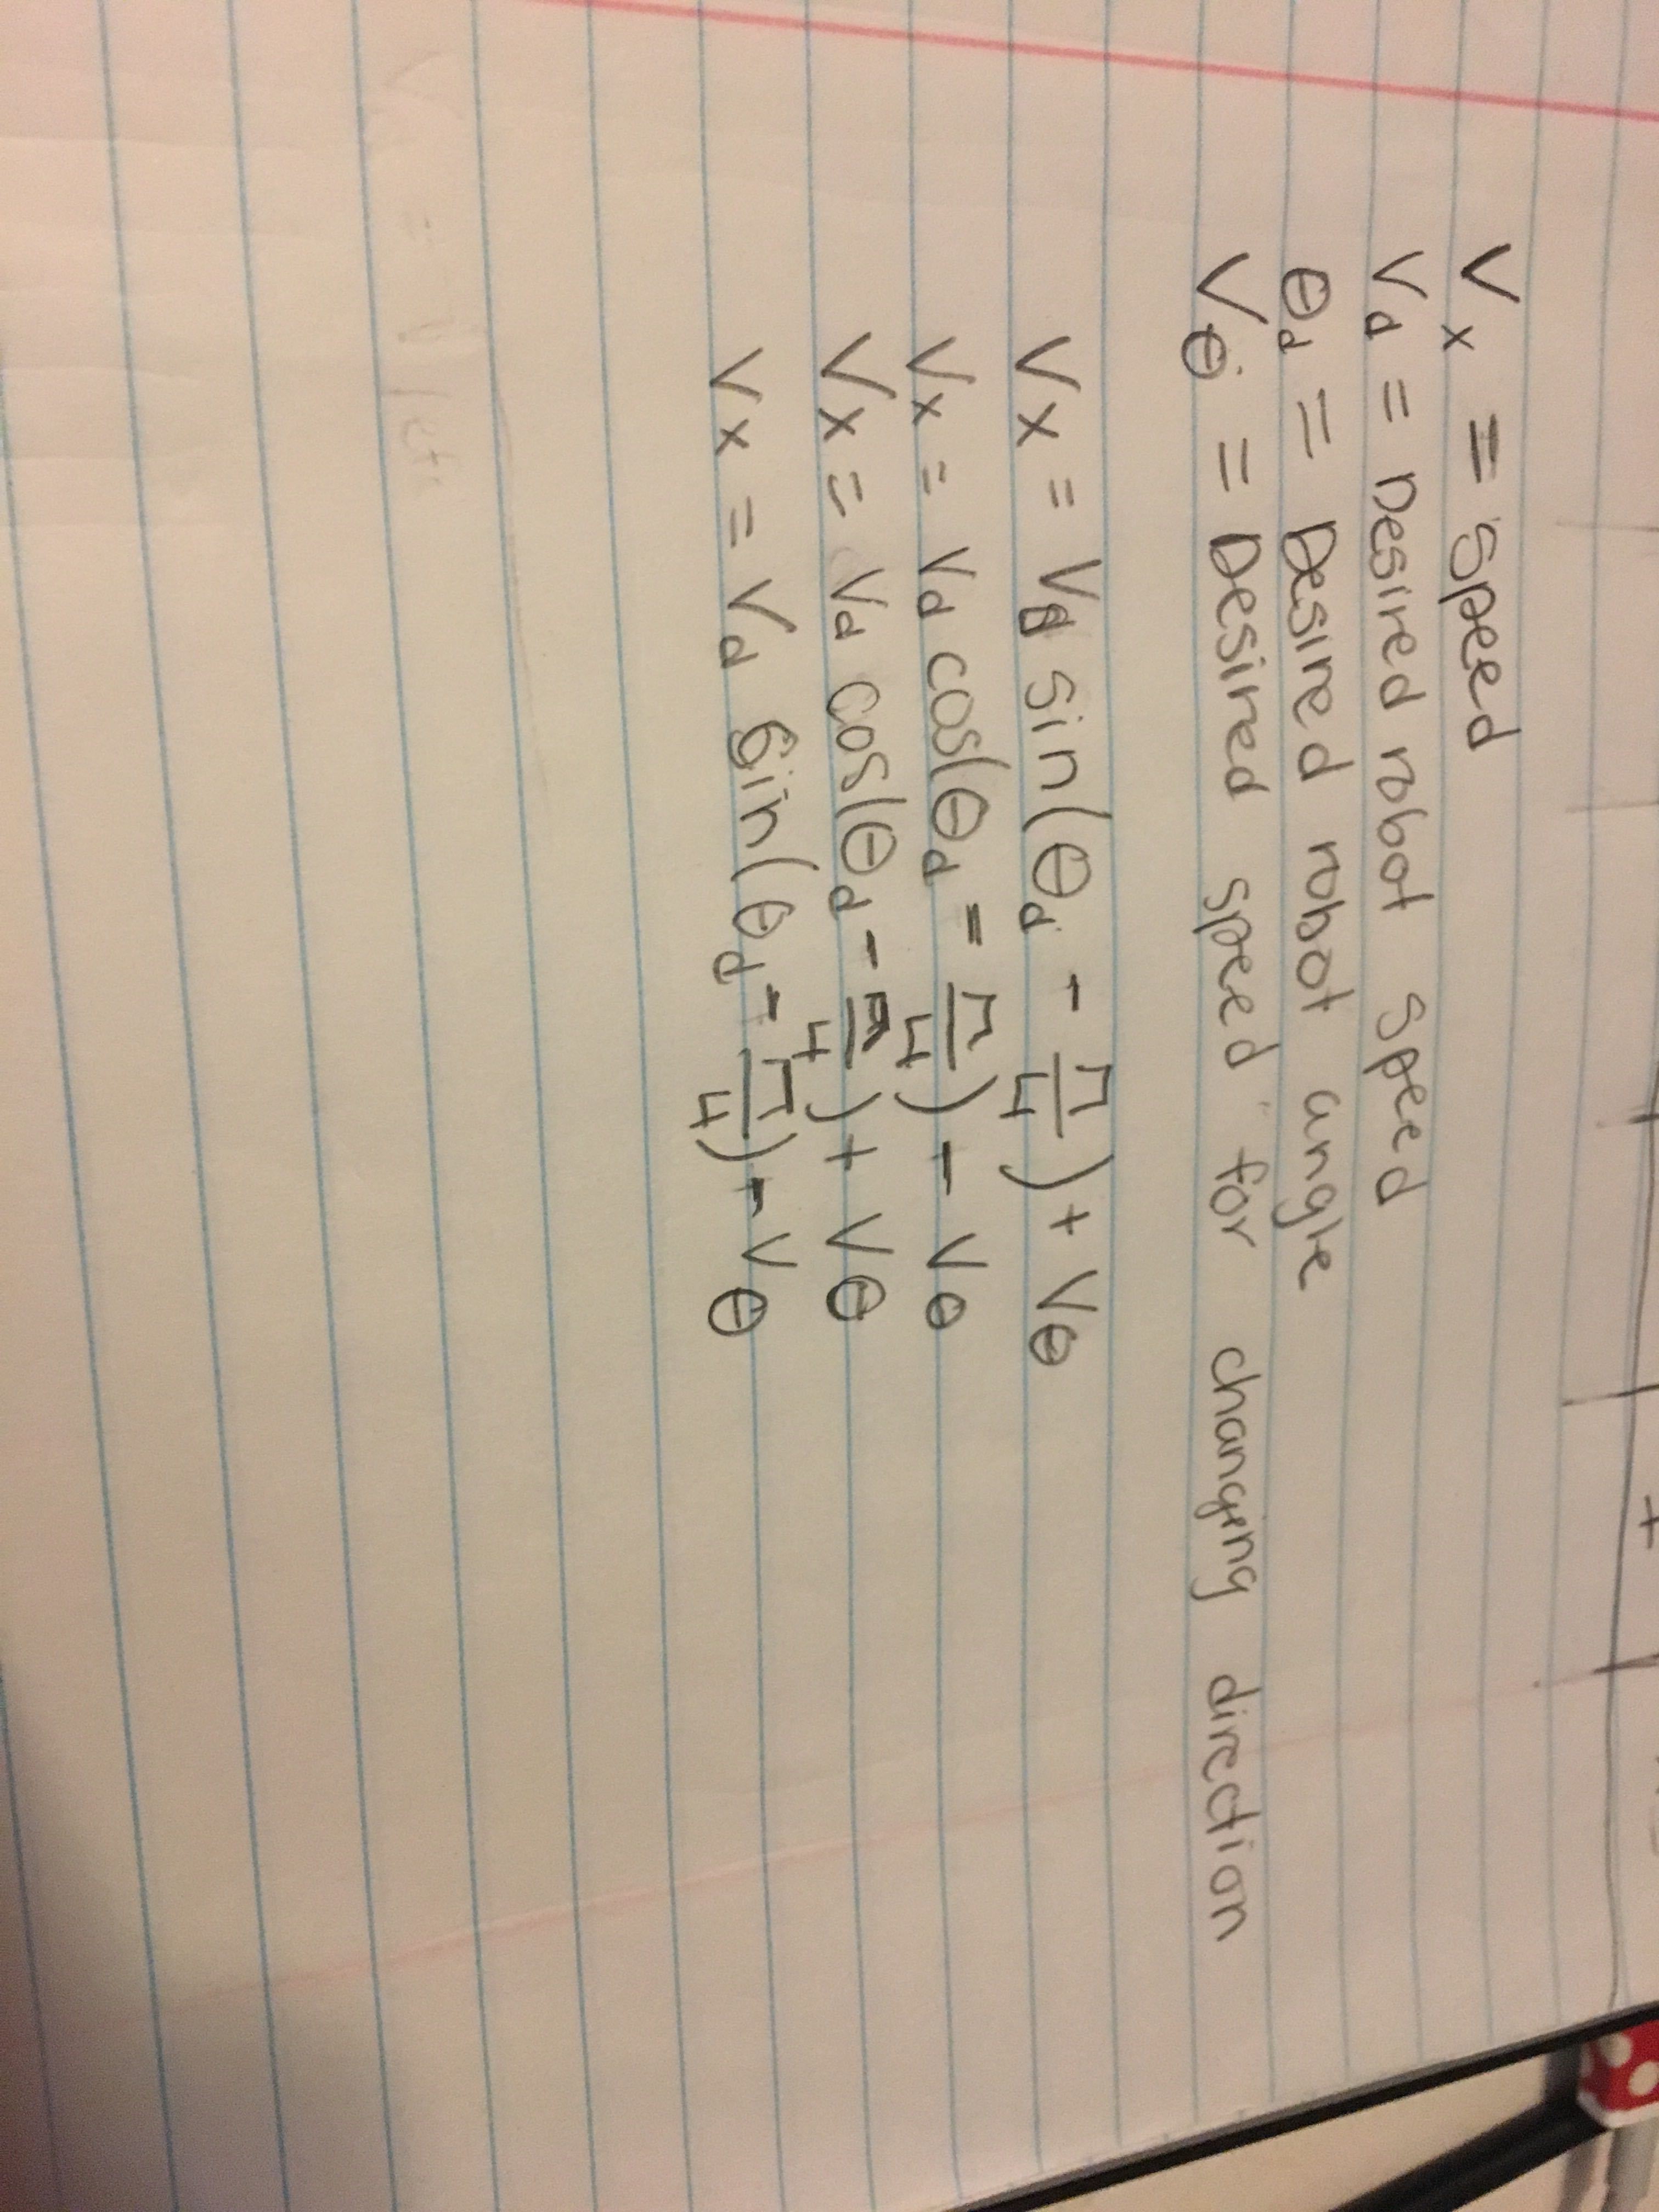 Vx = Speed
Vd = Desired robot speed
θd = Desired robot angle
Vθ = Desired speed for changing direction
Vx = Vd sin(θd - π/4) + Vθ
Vx = Vd cos(θd - π/4) - Vθ
Vx = Vd cos(θd - π/4) + Vθ
Vx = Vd sin(θd - π/4) - Vθ